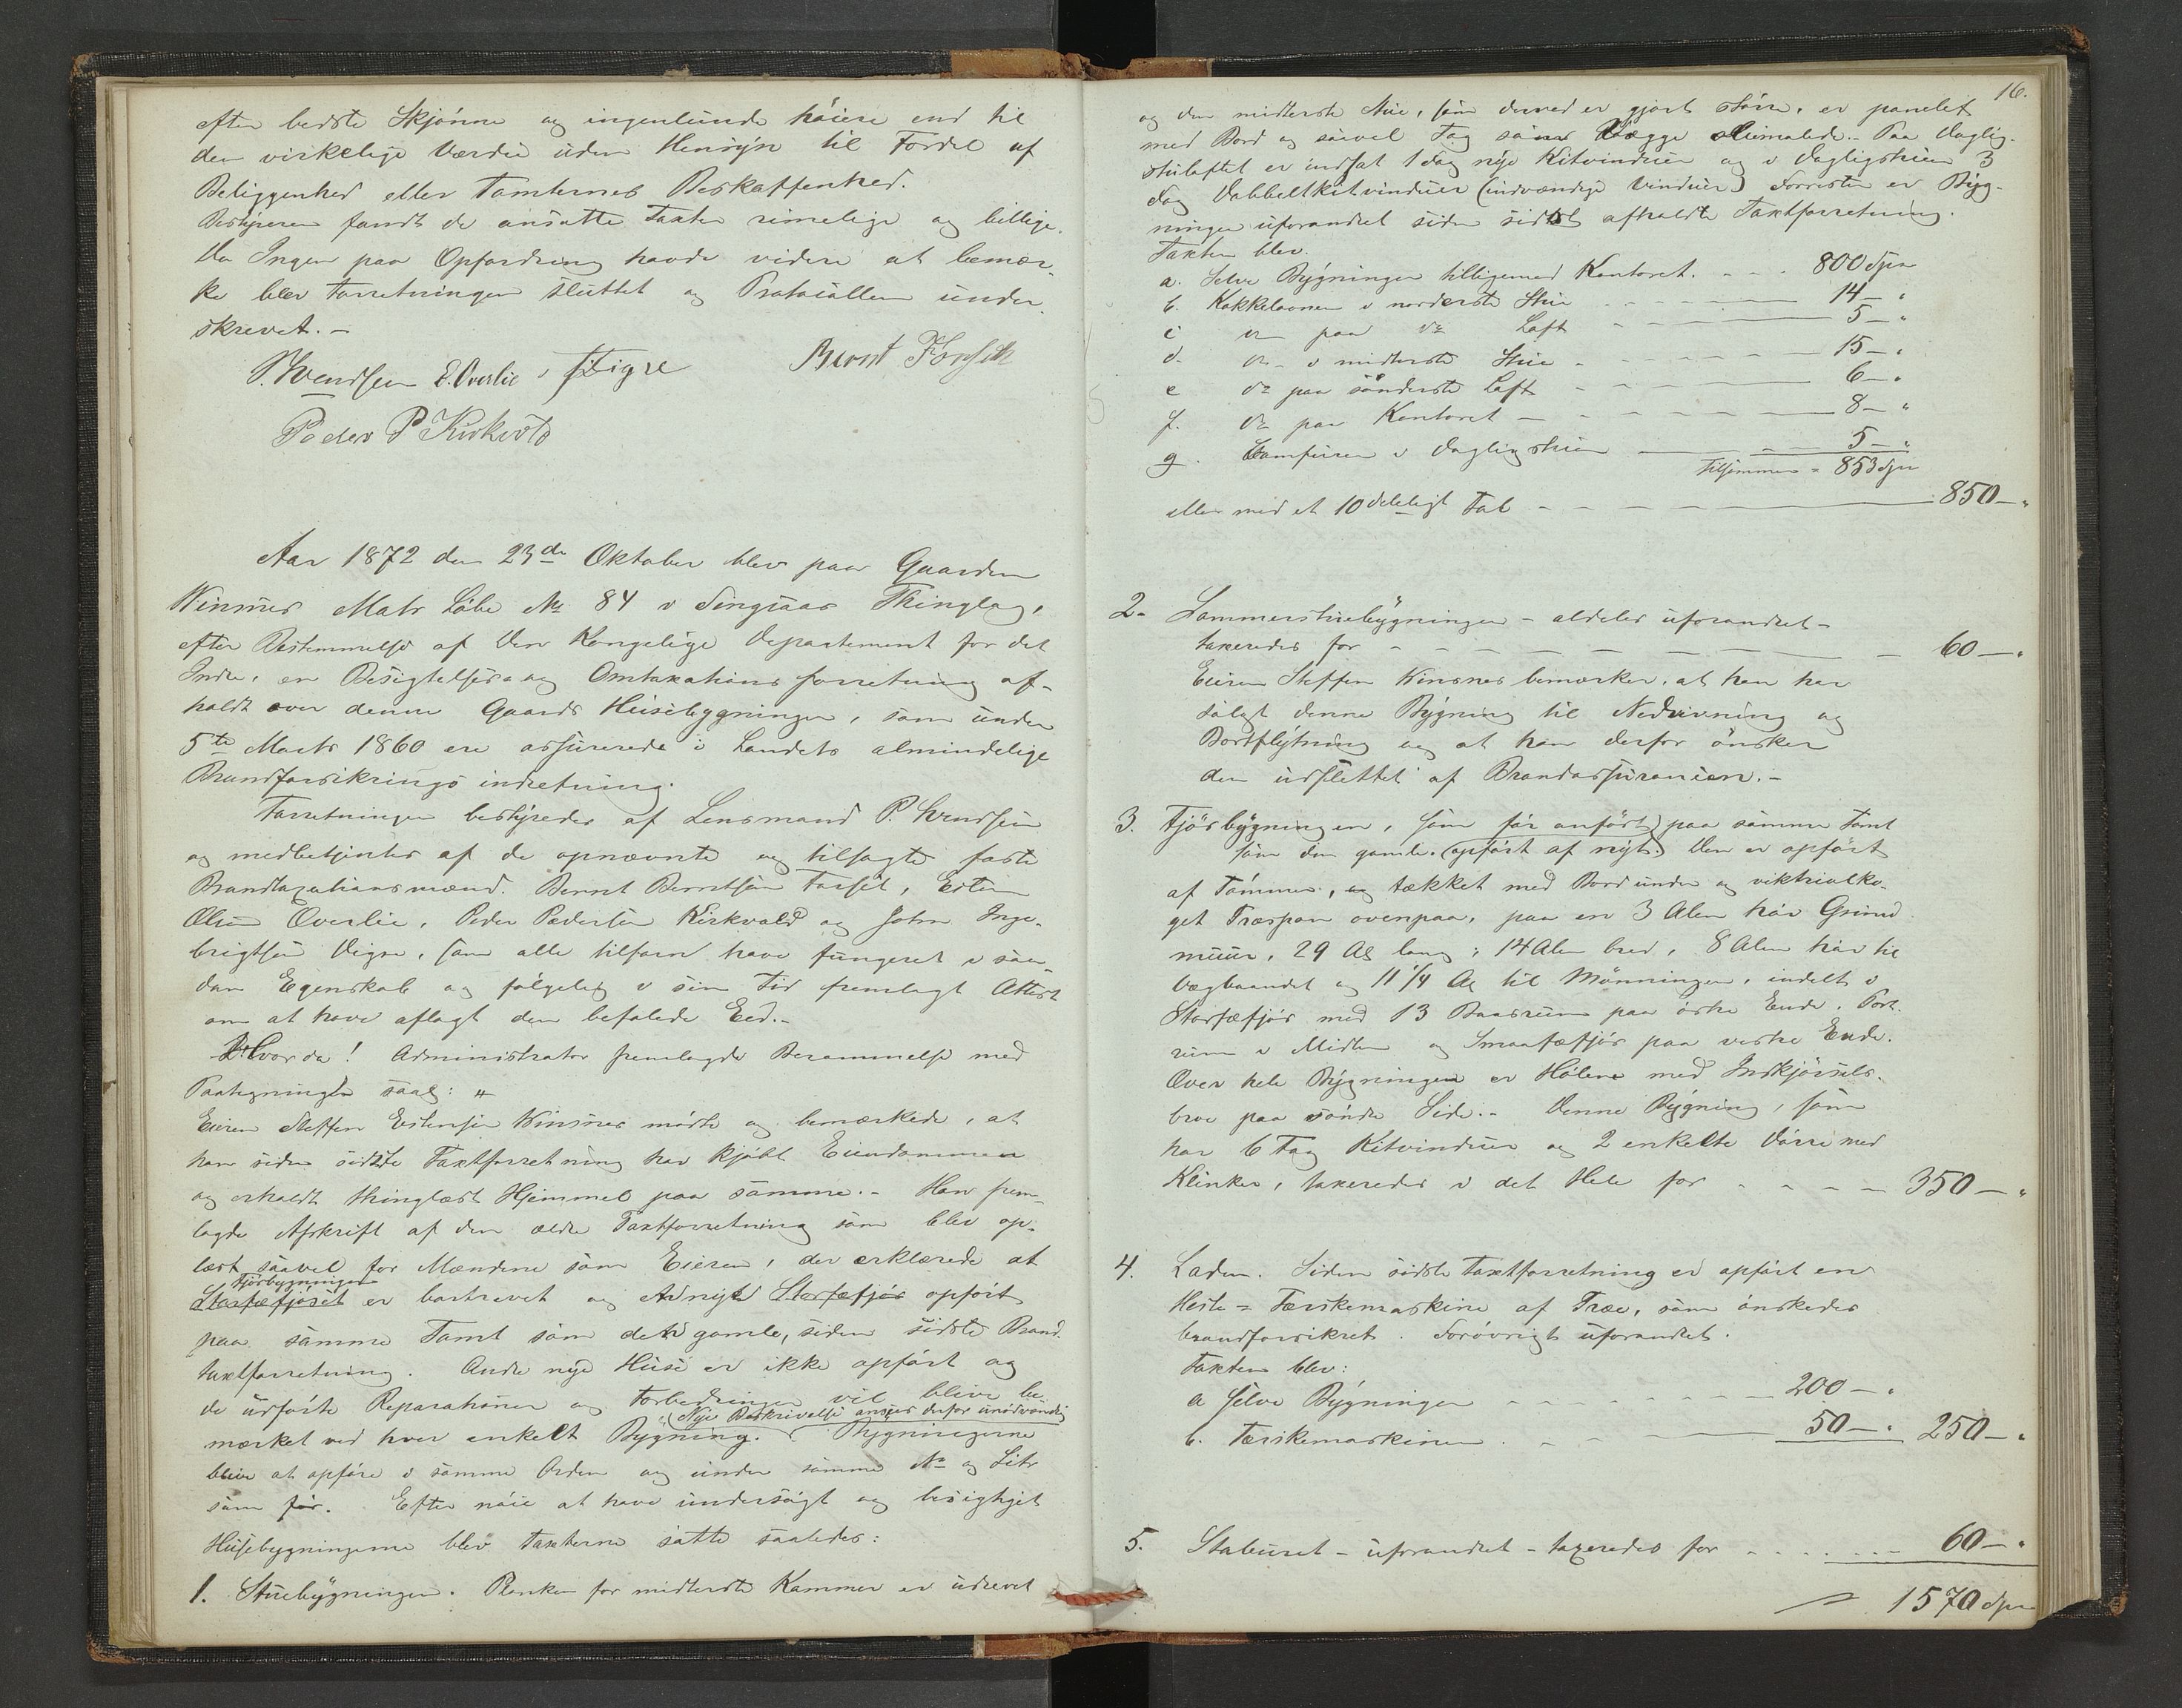 efter bedste Skjønne og ingenlunde høiere end til
den virkelige Værdie uden Hensyn til Fordel af
Beliggenhed eller Tomternes Beskaffenhed.
Bestyreren fandt de ansatte Taxter rimelige og billige.
Da Ingen paa Opfordring havde videre at bemær-
ke blev Forretningen sluttet og Protocollen under-
skrevet. -
P. Svendsen E. Øverlie J. J. Vigre Bernt Forseth
Peder P Kirkvold
Aar 1872 den 23de Oktober blev paa Gaarden
Winsnes Matr Løbe No 84 i Singsaas Thinglag,
efter Bestemmelse af Den Kongelige Departement for det
Indre, en Besigtelses- og Omtaxationsforretning af-
holdt over denne Gaards Husebygninger, som under
5te Marts 1860 ere assurerede i Landets almindelige
Brandforsikringsindretning.
Forretningen bestyredes af Lensmand P. Svendsen
og medbetjentes af de opnævnte og tilsagte faste
Brandtaxationsmænd. Bernt Berntsen Forset, Esten
Olsen Øverlie, Peder Pedersen Kirkvold og John Inge-
brigtsen Vigre, som alle tilforn have fungeret i saa-
dan Egenskab og følgelig i sin Tid fremlagt Attest
om at have aflagt den befalede Eed. -
Hvorda! Administrator fremlagde Berammelse med
Paategninger saal: "
Eieren Steffen Estensen Winsnes mødte og bemærkede, at
han siden sidste Taxtforretning har kjøbt Eiendommen
og erholdt thinglæst Hjemmel paa samme. - Han frem-
lagde Afskrift af den ældre Taxtforretning som blev op-
læst saavel for Mændene som Eieren, der erklærede at
Fjøsbygningen
Storfæfjøset er bortrevet og Storfæfjøs opført
paa samme Tomt som den gamle, siden sidste Brand-
taxtforretning. Andre nye Huse er ikke opført og
de udførte Reparationer og Forbedringer vil blive be-
(Nye Beskrivelse ansees derfor unødvendig
mærket ved hver enkelt Bygning. Bygningerne
blive at opføre i samme Orden og under samme No og Litr
som før. Efter nøie at have undersøgt og besigtiget
Husebygningerne blev Taxterne satte saaledes:
1. Stuebygningen. Planken for midterste Kammer er udrevet
16.
og den midterste Stue, som derved er gjort større, er panelet
med Bord og saavel Tag som Vægge oliemalede. - Paa Daglig-
stuloftet er indsat 1 Fag nye Kitvinduer og i Dagligstuen 3
Fag Dobbeltkitvinduer (indvændige Vinduer) Forresten er Byg-
ningen uforandret siden sidst afholdte Taxtforretning.
Taxten blev.
a. Selve Bygningen tilligemed Kontoret. - - - 800 Spd
b. Kakkelovnen i nordreste Stue - - - 14 - "
c do paa do Loft - - - 5 - "
d. do - i midterste Stue - - - 15 - "
e do paa søndreste Loft - - - 6 - "
f. do paa Kontoret - - - 8 - "
g. Komfuren i Dagligstuen - - - 5 - "
Tilsammen = 853 Spd
eller med et 10 deleligt Tal - - - 850 - "
2. Sommerstuebygningen - aldeles uforandret -
taxeredes for - - - 60 - "
Eieren Steffen Winsnes bemærker, at han har
solgt denne Bygning til Nedrivning og
Bortflytning og at han derfor ønsker
den udslettet af Brandassurancen. -
3. Fjøsbygningen, som før anført, paa samme Tomt
som den gamle. (opført af nyt.) Den er opført
af Tømmer, og tækket med Bord under og viktriolko-
get Træspon ovenpaa, paa en 3 Alen høi Grund
muur, 29 Al lang, 14 Alen bred, 8 Alen høi til
Vægbaandet og 11 1/4 Al til Mønningen, indelt i
Storfæfjøs med 13 Baasrum paa østre Ende. Port-
rum i Midten og Smaafæfjøs paa vestre Ende.
Over hele Bygningen er Hølem med Indkjørsels-
bro paa søndre Side. - Denne Bygning, som
har 6 Fag Kitvinduer og 2 enkelte Dørre med
Klinker, taxeredes i det Hele for - - - 350 - "
4. Laden. Siden sidste Taxtforretning er opført en
Heste = Tærskemaskine af Træe, som ønskedes
brandforsikret. Forøvrigt uforandret.
Taxten blev:
a Selve Bygningen - - - 200 - "
b. Tærskemaskinen - - - 50 - " 250 - "
5. Staburet - uforandret - taxeredes for - - - 60 - "
1570 Spd